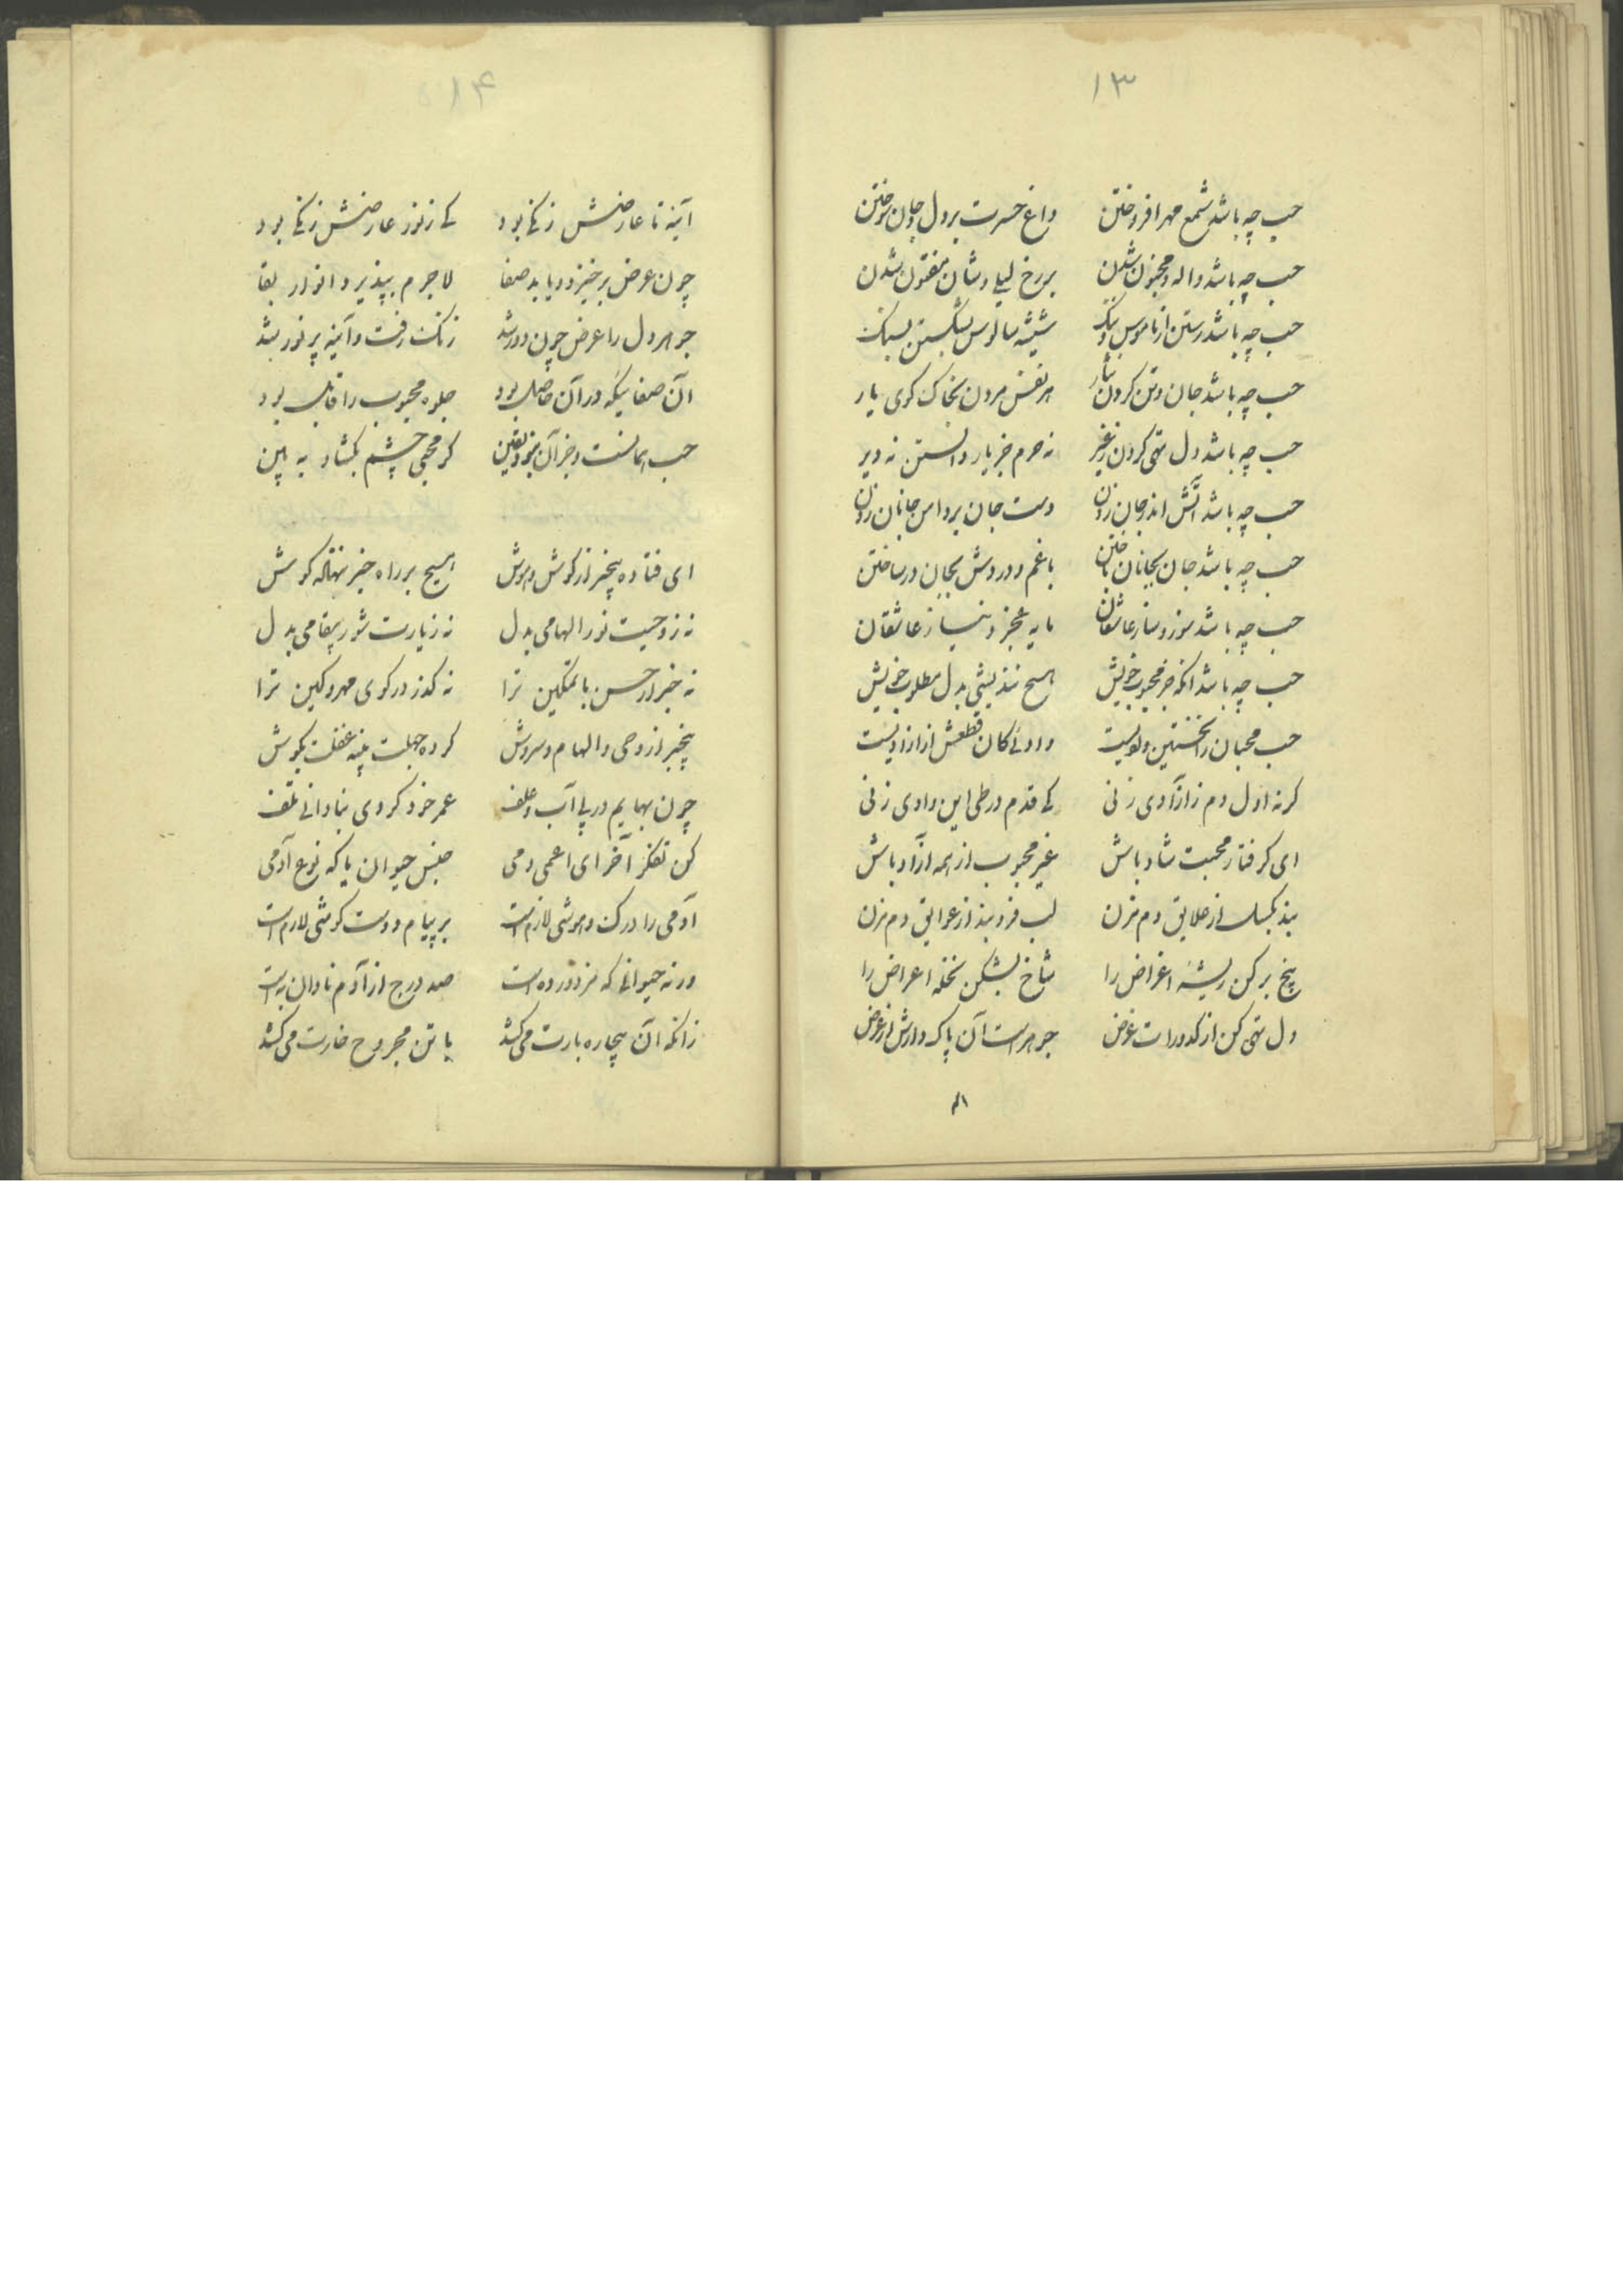 ۱۳
حب چه باشد شمع مهر افروختن داغ حسرت بر دل و جان سوختن
حب چه باشد واله و مجنون شدن بر رخ لیلی وشان مفتون شدن
حب چه باشد رستن از ناموس و ننگ شیشه سالوس بشکستن بسنگ
حب چه باشد جان و تن کردن نثار هر نفس مردن بخاک کوی یار
حب چه باشد دل تهی کردن ز غیر نه حرم جز یار دانستن نه دیر
حب چه باشد آتش اندر جان زدن دست جان بر دامن جانان زدن
حب چه باشد جان بجانان باختن با غم و دردش بجان در ساختن
حب چه باشد سوز و ساز عاشقان مایه عجز و نیاز عاشقان
حب چه باشد انکه جز محبوب خویش هیچ نندیشی بدل مطلوب خویش
حب محبان را نخستین وادیست کان قطعش از ازادیست
کر نه اول دم ز ازادی زنی کی قدم در طی این وادی زنی
ای کرفتار محبت شاد باش غیر محبوب از همه آزاد باش
بند بکسل از علایق دم مزن لب فرو بند از عوایق دم مزن
بیخ بر کن ریشهٔ اغراض را شاخ بشکن نخله اعراض را
دل تهی کن از کدورات غرض جوهر است آن پاک دارش از عرض
۱۴
آینه تا عارضش زنگی بود کی ز نور عارضش رنگی بود
چون عرض برخیزد و یابد صفا لاجرم بپذیرد انوار بقا
جوهر دل را عرض چون دور شد زنگ رفت و آینه پر نور شد
آن صفائیکه در آن حاصل بود جلوه محبوب را قابل بود
حب همانست و جز آن نبود یقین کر محبی چشم بکشا و به بین
ای فتاده بیخبر از کوش و هوش هیچ بر راه خبر ننهاده کوش
نه ز وحیت نور الهامی بدل نه ز یارت شور پیغامی بدل
نه خبر از حسن با تمکین ترا نه کذر در کوی مهر و کین ترا
بیخبر از وحی و الهام و سروش کرده جهلت پنبه غفلت بکوش
چون بهایم در پی آب و علف عمر خود کردی بنادانی تلف
کن تفکر آخر ای اعمی دمی جنس حیوان یا که نوع آدمی
آدمی را درک و هوشی لازم است بر پیام دوست کوشی لازم است
ورنه حیوانی که مزدور ده است صد درج از آدم نادان به است
زانکه آن بیچاره بارت می‌کشد با تن مجروح خارت می‌کشد